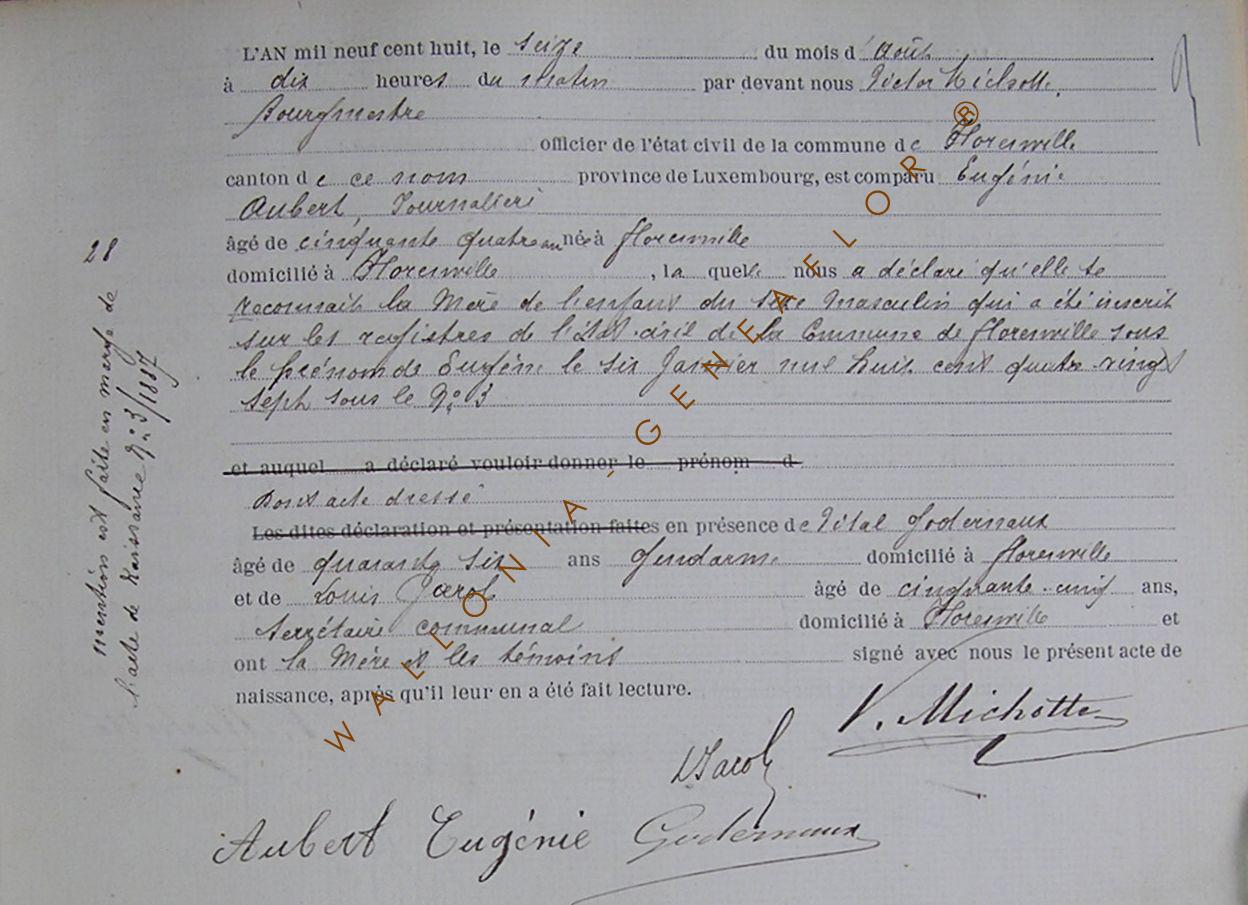 L'AN mil neuf cent huit, le seize du mois d'Août
à dix heures du matin par devant nous Victor Michotte,
Bourgmestre
officier de l'état civil de la commune de Florenville
canton de ce nom province de Luxembourg, est comparu Eugénie
Aubert, Journalière
âgé de cinquante quatre ans née à florenville
domicilié à Florenville, la quelle nous a déclaré qu'elle se
reconnait la Mère de l'enfant du sexe masculin qui a été inscrit
sur les registres de l'état-civil de la Commune de florenville sous
le prénom de Eugène le six Janvier mil huit cent quatre-vingt
sept sous le N° 3
et auquel a déclaré vouloir donner le prénom d
Dont acte dressé
Les dites déclaration et présentation faites en présence de Vital Godernaux
âgé de quarante six ans Gendarme domicilié à florenville
et de Louis Jacob âgé de cinquante-cinq ans,
Secrétaire communal domicilié à Florenville et
ont la Mère et les témoins signé avec nous le présent acte de
naissance, après qu'il leur en a été fait lecture.
28
mention est faite en marge de
l'acte de Naissance N° 3/1887
V. Michotte
L Jacob
Aubert Eugénie Godernaux
WALLONIA-GENEAFLOR ®